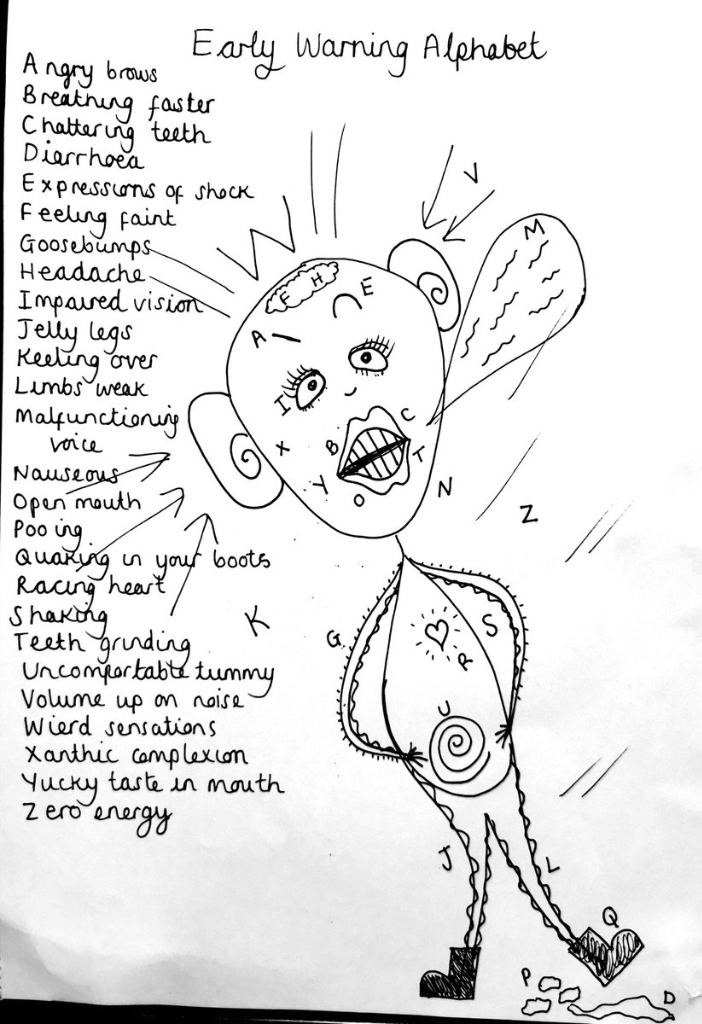 Early Warning Alphabet
Angry brows
Breathing faster
Chattering teeth
Diarrhoea
Expressions of shock
Feeling faint
Goosebumps
Headache
Impaired vision
Jelly legs
Keeling over
Limbs weak
Malfunctioning
voice
Nauseous
Open mouth
Pooing
Quaking in your boots
Racing heart
Shaking
Teeth grinding
Uncomfortable tummy
Volume up on noise
Wierd sensations
Xanthic complexion
Yucky taste in mouth
Zero energy
V
M
F H
E
A
I
C
X
B
T
Y
O
N
Z
K
G
S
R
U
J
L
Q
P
D